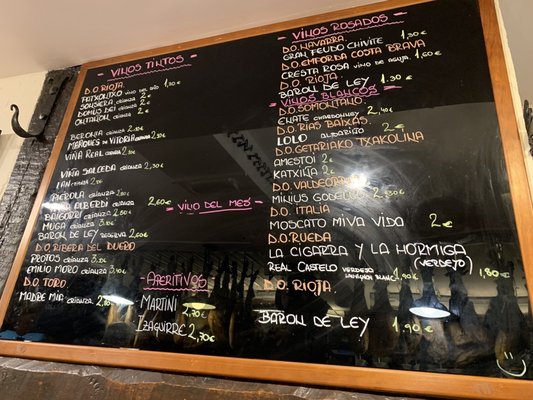 VINOS TINTOS
D.O. RIOJA.
PATXOLTXO vino del año 1,30€
SONSIERA crianza 2€
DOMUS DEI crianza 2€
ONTAÑON. crianza 2€
BERONIA crianza 2,10€
MARQUES DE VITORIA crianza
VIÑA REAL crianza
VIÑA SALCEDA crianza 2,30€
LAN crianza
PIEROLA crianza
ALBERDI crianza 2,60€
BAIGORRI crianza 2,80€
MUGA crianza 3€
BARON DE LEY reserva 2,60€
D.O. RIBERA DEL DUERO
PROTOS crianza
EMILIO MORO crianza
D.O. TORO.
MADRE MIA crianza.
- VINO DEL MES -
- APERITIVOS -
MARTINI
IZAGUIRRE 2,70€
VINOS ROSADOS
D.O. NAVARRA.
GRAN FEUDO CHIVITE 1,30€
D.O. EMPORDA COSTA BRAVA
CRESTA ROSA vino de aguja. 1,60€
D.O. RIOJA
BARON DE LEY 1,30€
VINOS BLANCOS
D.O. SOMONTANO.
ENATE chardonnay 2,40€
D.O. RIAS BAIXAS.
LOLO albariño 2€
D.O. GETARIAKO TXAKOLINA
AMESTOI 2€
KATXIÑA 2€
D.O. VALDEORRAS
MINIUS GODELLO
D.O. ITALIA
MOSCATO MIVA VIDA 2€
D.O. RUEDA
LA CIGARRA Y LA HORMIGA
(VERDEJO) 1,80€
REAL CASTELO
D.O. RIOJA.
BARON DE LEY 1,90€